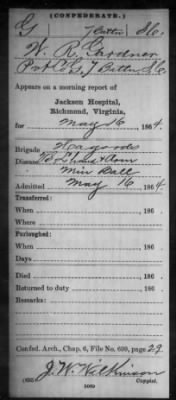 (CONFEDERATE.)
G 7 Batt'n S.C.
W. R. Gardner
Pvt Co G, 7 Battn S.C.
Appears on a morning report of
Jackson Hospital,
Richmond, Virginia,
for May 16, 1864.
Brigade Hagoods
Disease hand & arm
Min Ball
Admitted May 16, 1864.
Transferred:
When , 186 .
Where
Furloughed:
When , 186 .
Days
Died , 186 .
Returned to duty , 186 .
Remarks:
Confed. Arch., Chap. 6, File No. 699, page 29
J. W. Wilkinson
Copyist.